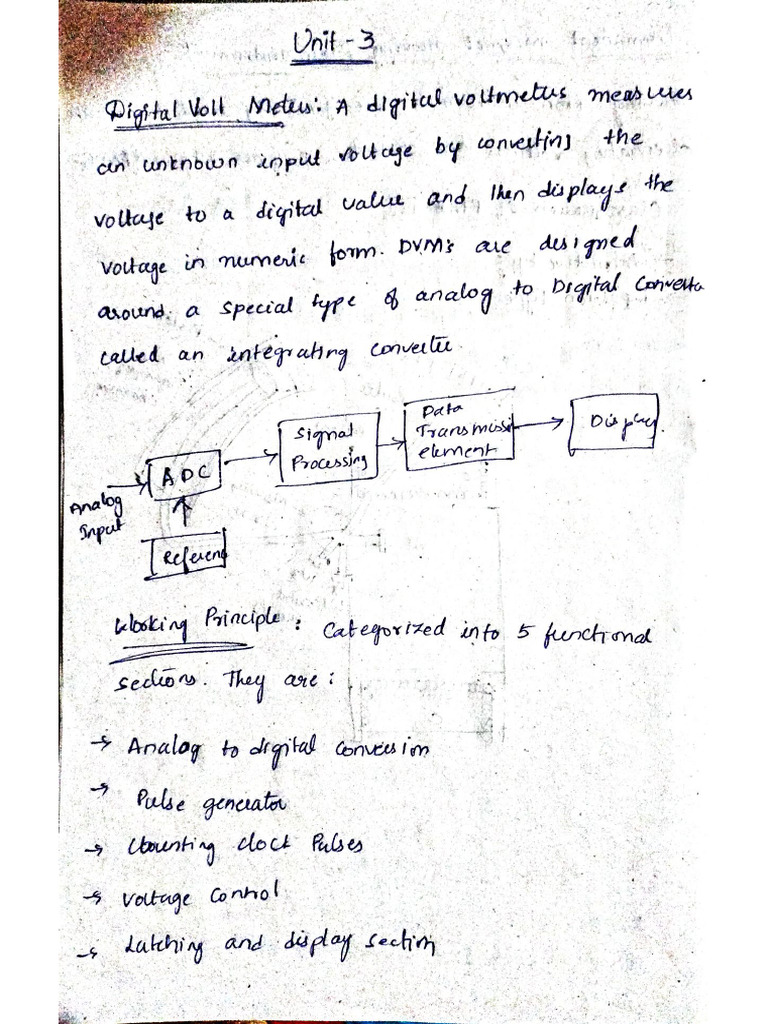 Unit - 3
Digital Volt Meters: A digital voltmeters measures
an unknown input voltage by converting the
voltage to a digital value and then displays the
voltage in numeric form. DVM's are designed
around a special type of analog to Digital Converte
called an integrating converter
Analog
Input
ADC
Referen
Signal
Processing
Data
Transmissi
element
Display
Working Principle : Categorized into 5 functional
sections. They are :
→ Analog to digital conversion
→ Pulse generator
→ Counting clock Pulses
→ Voltage Control
→ Latching and display section